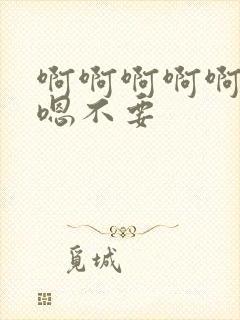 啊啊啊啊啊
嗯不要
觅城